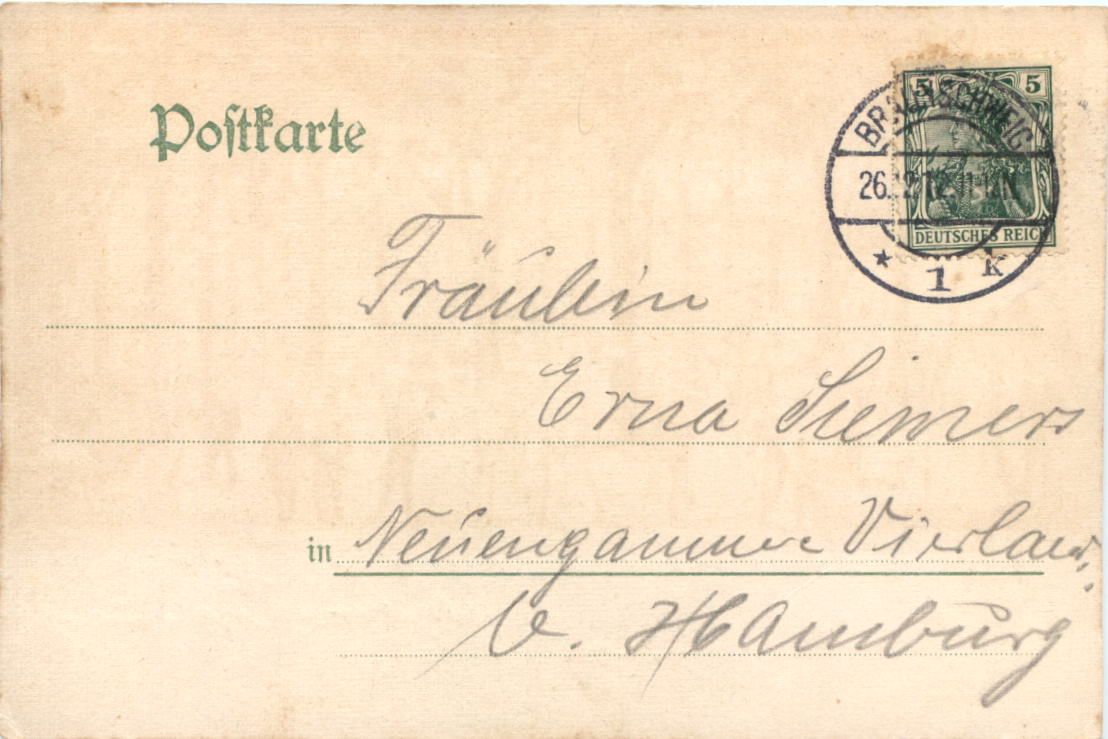 Postkarte
5 5
BRAUNSCHWEIG
26.12.12. 11-12N
DEUTSCHES REICH
* 1 k
Fräulein
Erna Siemers
in Neuengamme Vierland.
b. Hamburg